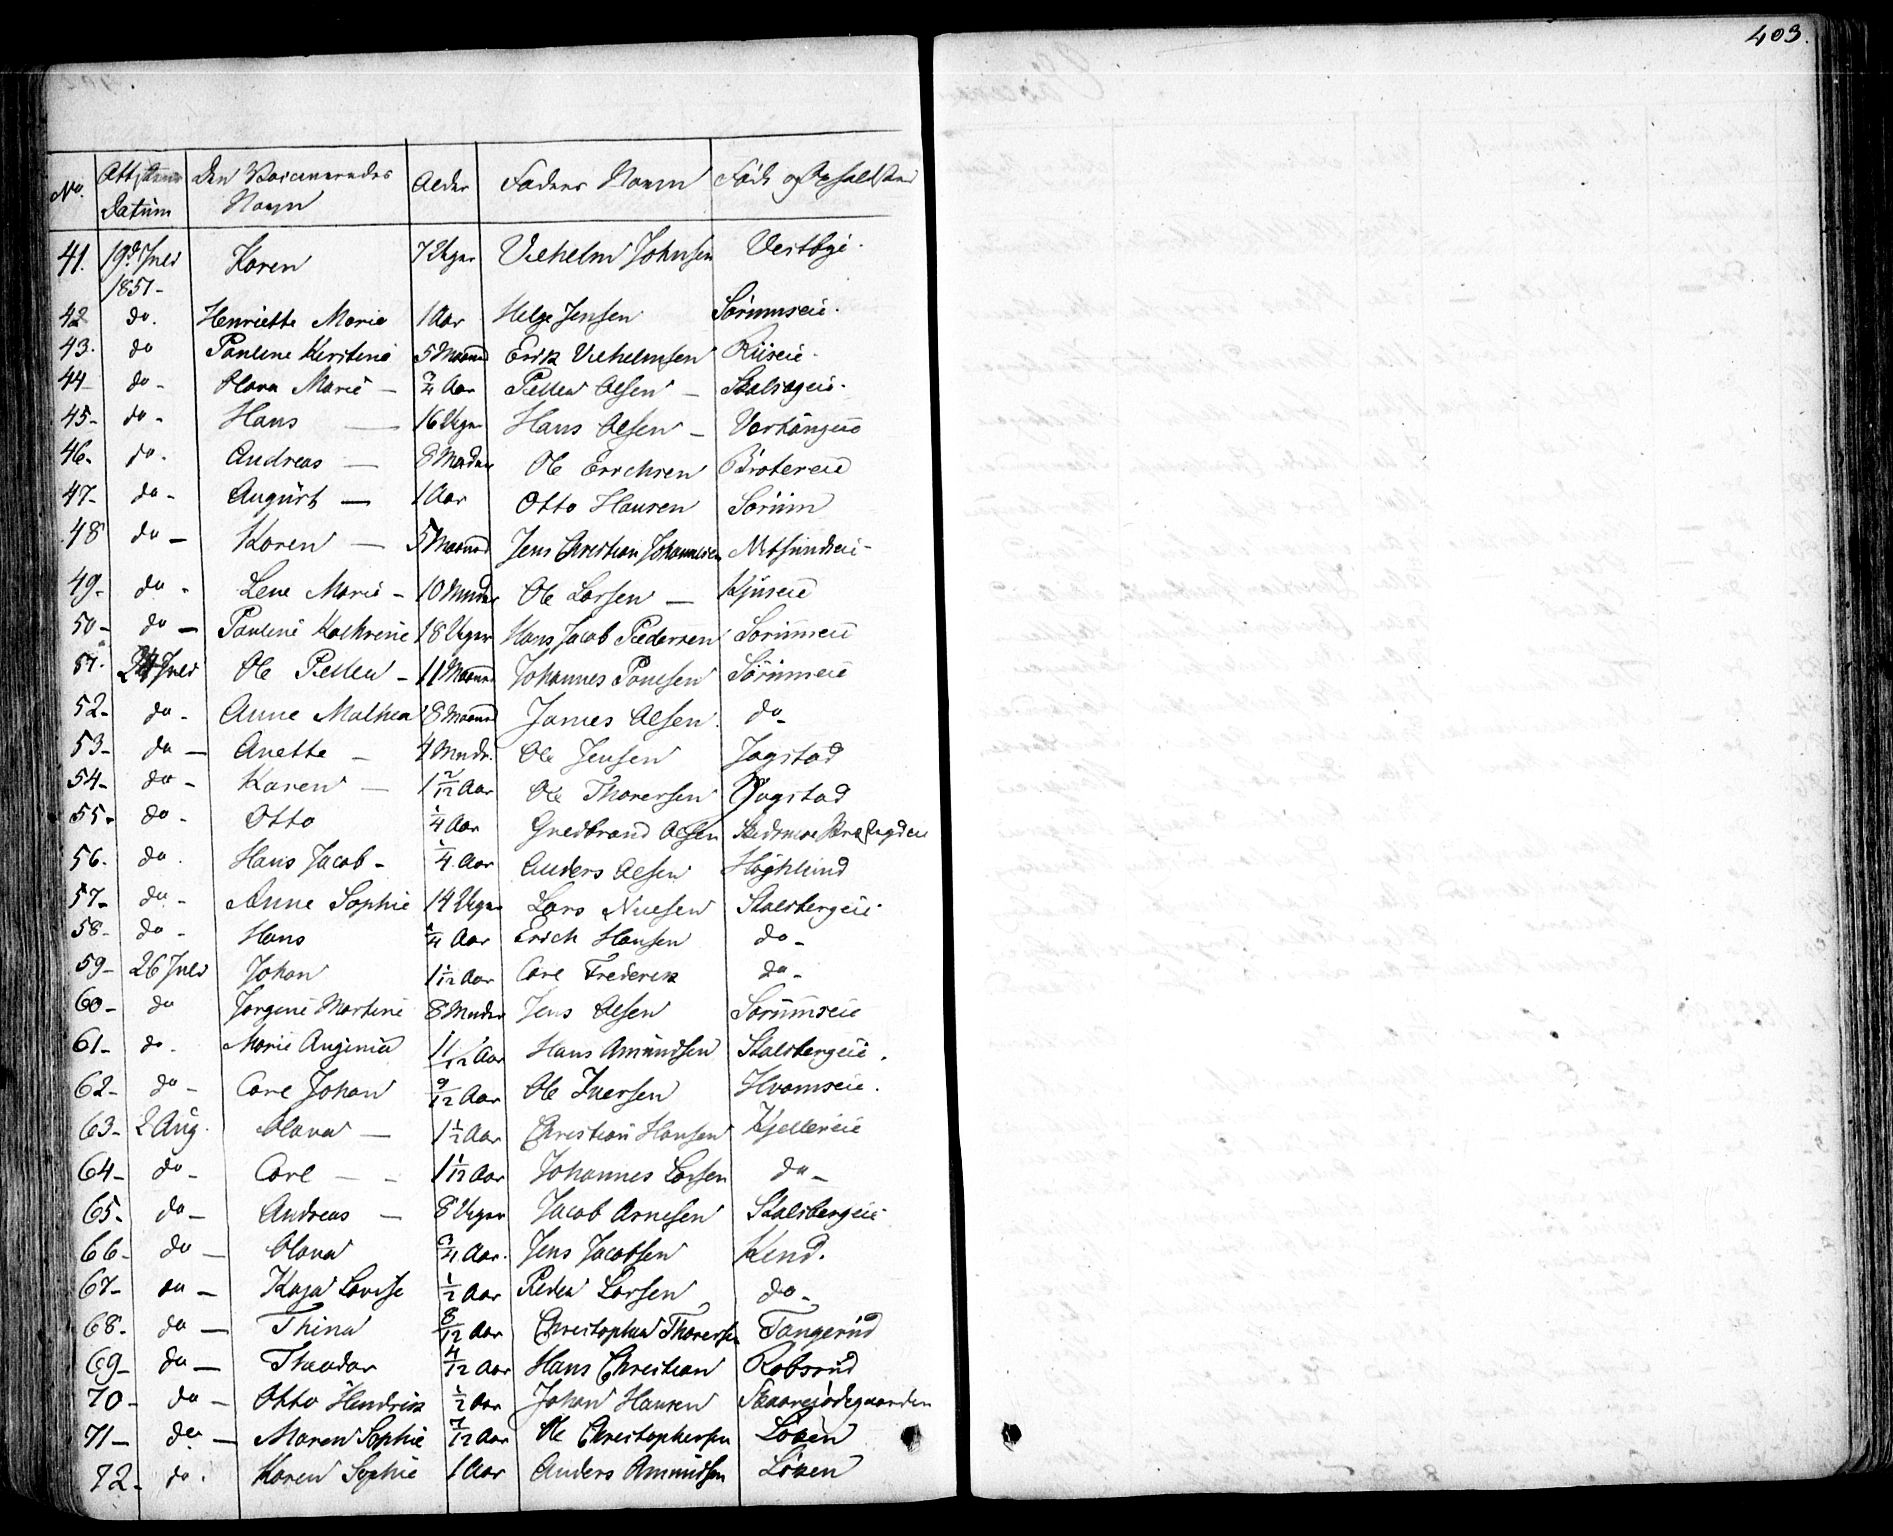 403.
No. Attestens Datum Den Vaccineredes Navn Alder Faders Navn Føde og Opholdsted
41. 19de Juli 1851 - Karen 7 Uger Vilhelm Johnsen Vestbye.
42 do. Henriette Marie 1 Aar Helge Jensen Sørumseie.
43. do Pauline Kirstine 5 Maaned Erik Vilhelmsen Riiseie.
44 do - Olava Marie - 3/4 Aar Petter Olsen - Stalsageie.
45 - do - Hans - 16 Uger Hans Olsen - Vorhaugeie
46. do. Andreas - 8 Mdr Ole Erichsen Brotereie
47 - do - August - 1 Aar Otto Hansen Sørum
48 do - Karen - 5 Maaned Jens Christian Johannesen Nitsundeie -
49 - do - Lene Marie - 10 Mndr Ole Larsen - Kjuseie
50 - do - Pauline Kathrine 18 Uger Hans Jacob Pedersen Sørumseie
51. 24 Juli Ole Petter - 11 Maaned Johannes Poulsen Sørumseie
52 - do - Anne Mathea 8 Maaned James Olsen. do -
53 - do - Anette - 4 Mndr. Ole Jensen Jogstad
54 - do - Karen - 1 2/12 Aar Ole Thoresen Jogstad
55 - do - Otto 1/4 Aar Guldbrand Olsen Skedsmoe
56. do. Hans Jacob - 1/4 Aar Anders Olsen Høghlund
57 - do - Anne Sophie 14 Uger Lars Nielsen Stalsbergeie
58 - do - Hans 1/4 Aar Erich Hansen do -
59 - 26 Juli Johan 1 1/12 Aar Carl Frederik do -
60 - do Jørgine Martine 8 Mndr Jens Olsen Sørumseie
61 - do - Marie Auginia 11/12 Aar Hans Amundsen Stalsbergeie.
62 - do - Carl Johan 9/12 Aar Ole Iversen Hvamseie.
63 - 2 Aug. Olava - 1 1/2 Aar Christian Hansen Kjellereie
64 - do - Carl - - 1 1/12 Aar Johannes Larsen do -
65 - do - Andreas - 8 Uger Jacob Arnesen Stalsbergeie
66 - do - Olava 3/4 Aar. Jens Jacobsen Kend.
67 - do - Kaja Lovise 1/2 Aar Peder Larsen do -
68 - do - Thina 8/12 Aar Christopher Thoresen Tangerud
69 - do - Theodor 4/12 Aar Hans Christian Robsrud
70 - do - Otto Hendrik 1/2 Aar Johan Hansen Skaarerødegaarden
71 - do - Maren Sophie 7/12 Aar Ole Christophersen Løken
72 - do. Karen Sophie 1 Aar Anders Amundsen Løken